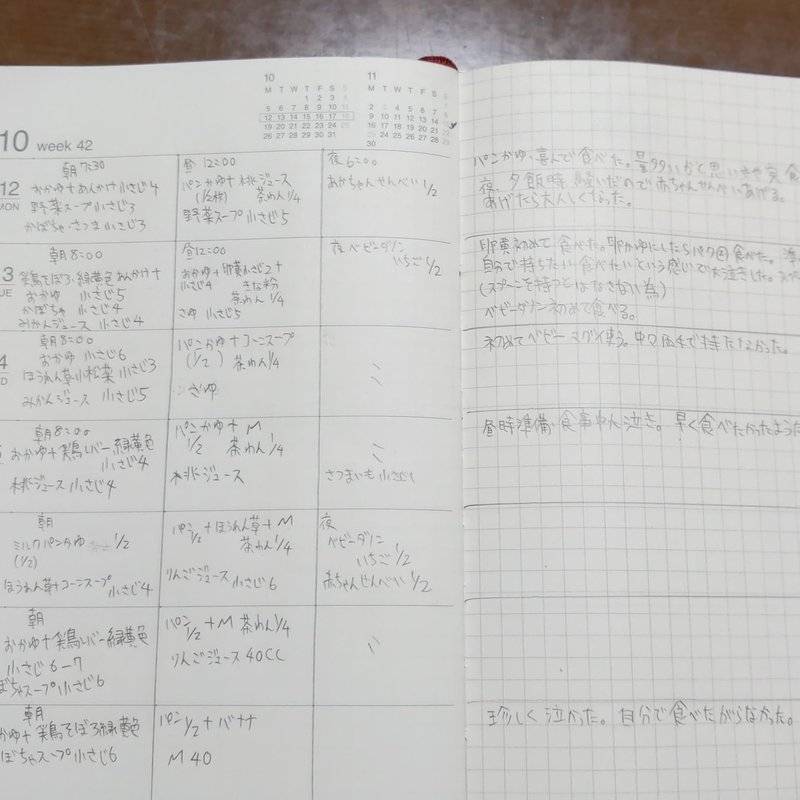 10 11
M T W T F S S M T W T F S S
1 2 3 4 1
5 6 7 8 9 10 11 2 3 4 5 6 7 8
12 13 14 15 16 17 18 9 10 11 12 13 14 15
19 20 21 22 23 24 25 16 17 18 19 20 21 22
26 27 28 29 30 31 23 24 25 26 27 28 29
30
10 week 42
12
MON
朝7:30
おかゆ+あんかけ 小さじ4
野菜スープ 小さじ3
かぼちゃ さつま 小さじ3
昼12:00
パンかゆ+桃ジュース
(1/2枚) 茶わん1/4
野菜スープ 小さじ5
夜6:00
あかちゃんせんべい 1/2
パンかゆ、喜んで食べた。量多いかと思いきや完食
夜、夕飯時騒いだので赤ちゃんせんべいあげる。
あげたら大人しくなった。
3
UE
朝8:00
鶏そぼろ緑黄色あんかけ+
おかゆ 小さじ5
かぼちゃ 小さじ4
みかんジュース 小さじ4
昼12:00
おかゆ+卵黄小さじ2+
小さじ4 きな粉
茶わん1/4
さゆ 小さじ5
夜 ベビーダノン
いちご1/2
卵黄初めて食べた。卵かゆにしたらパク食べた。
自分で持ちたい食べたいという感じで大泣きした。
(スプーンを持つとはなさない為)
ベビーダノン初めて食べる。
4
D
朝8:00
おかゆ 小さじ6
ほうれん草小松菜 小さじ3
みかんジュース 小さじ5
パンかゆ+コーンスープ
(1/2) 茶わん1/4
さゆ
初めてベビーマグ使う。
持たなかった。
朝8:00
おかゆ+鶏レバー緑黄色
小さじ4
桃ジュース 小さじ4
パンかゆ+M
1/2 茶わん1/4
桃ジュース
さつまいも 小さじ1
昼時準備・食事中大泣き。早く食べたかったようだ
朝
ミルクパンかゆ 1/2
(1/2)
ほうれん草+コーンスープ
小さじ4
パン1/2+ほうれん草+M
茶わん1/4
りんごジュース 小さじ6
夜
ベビーダノン
いちご1/2
赤ちゃんせんべい1/2
朝
おかゆ+鶏レバー緑黄色
小さじ6-7
ぼちゃスープ小さじ6
パン1/2+M 茶わん1/4
りんごジュース40CC
朝
かゆ+鶏そぼろ緑黄色
ぼちゃスープ小さじ6
パン1/2+バナナ
M 40
珍しく泣かった。自分で食べたがらなかった。